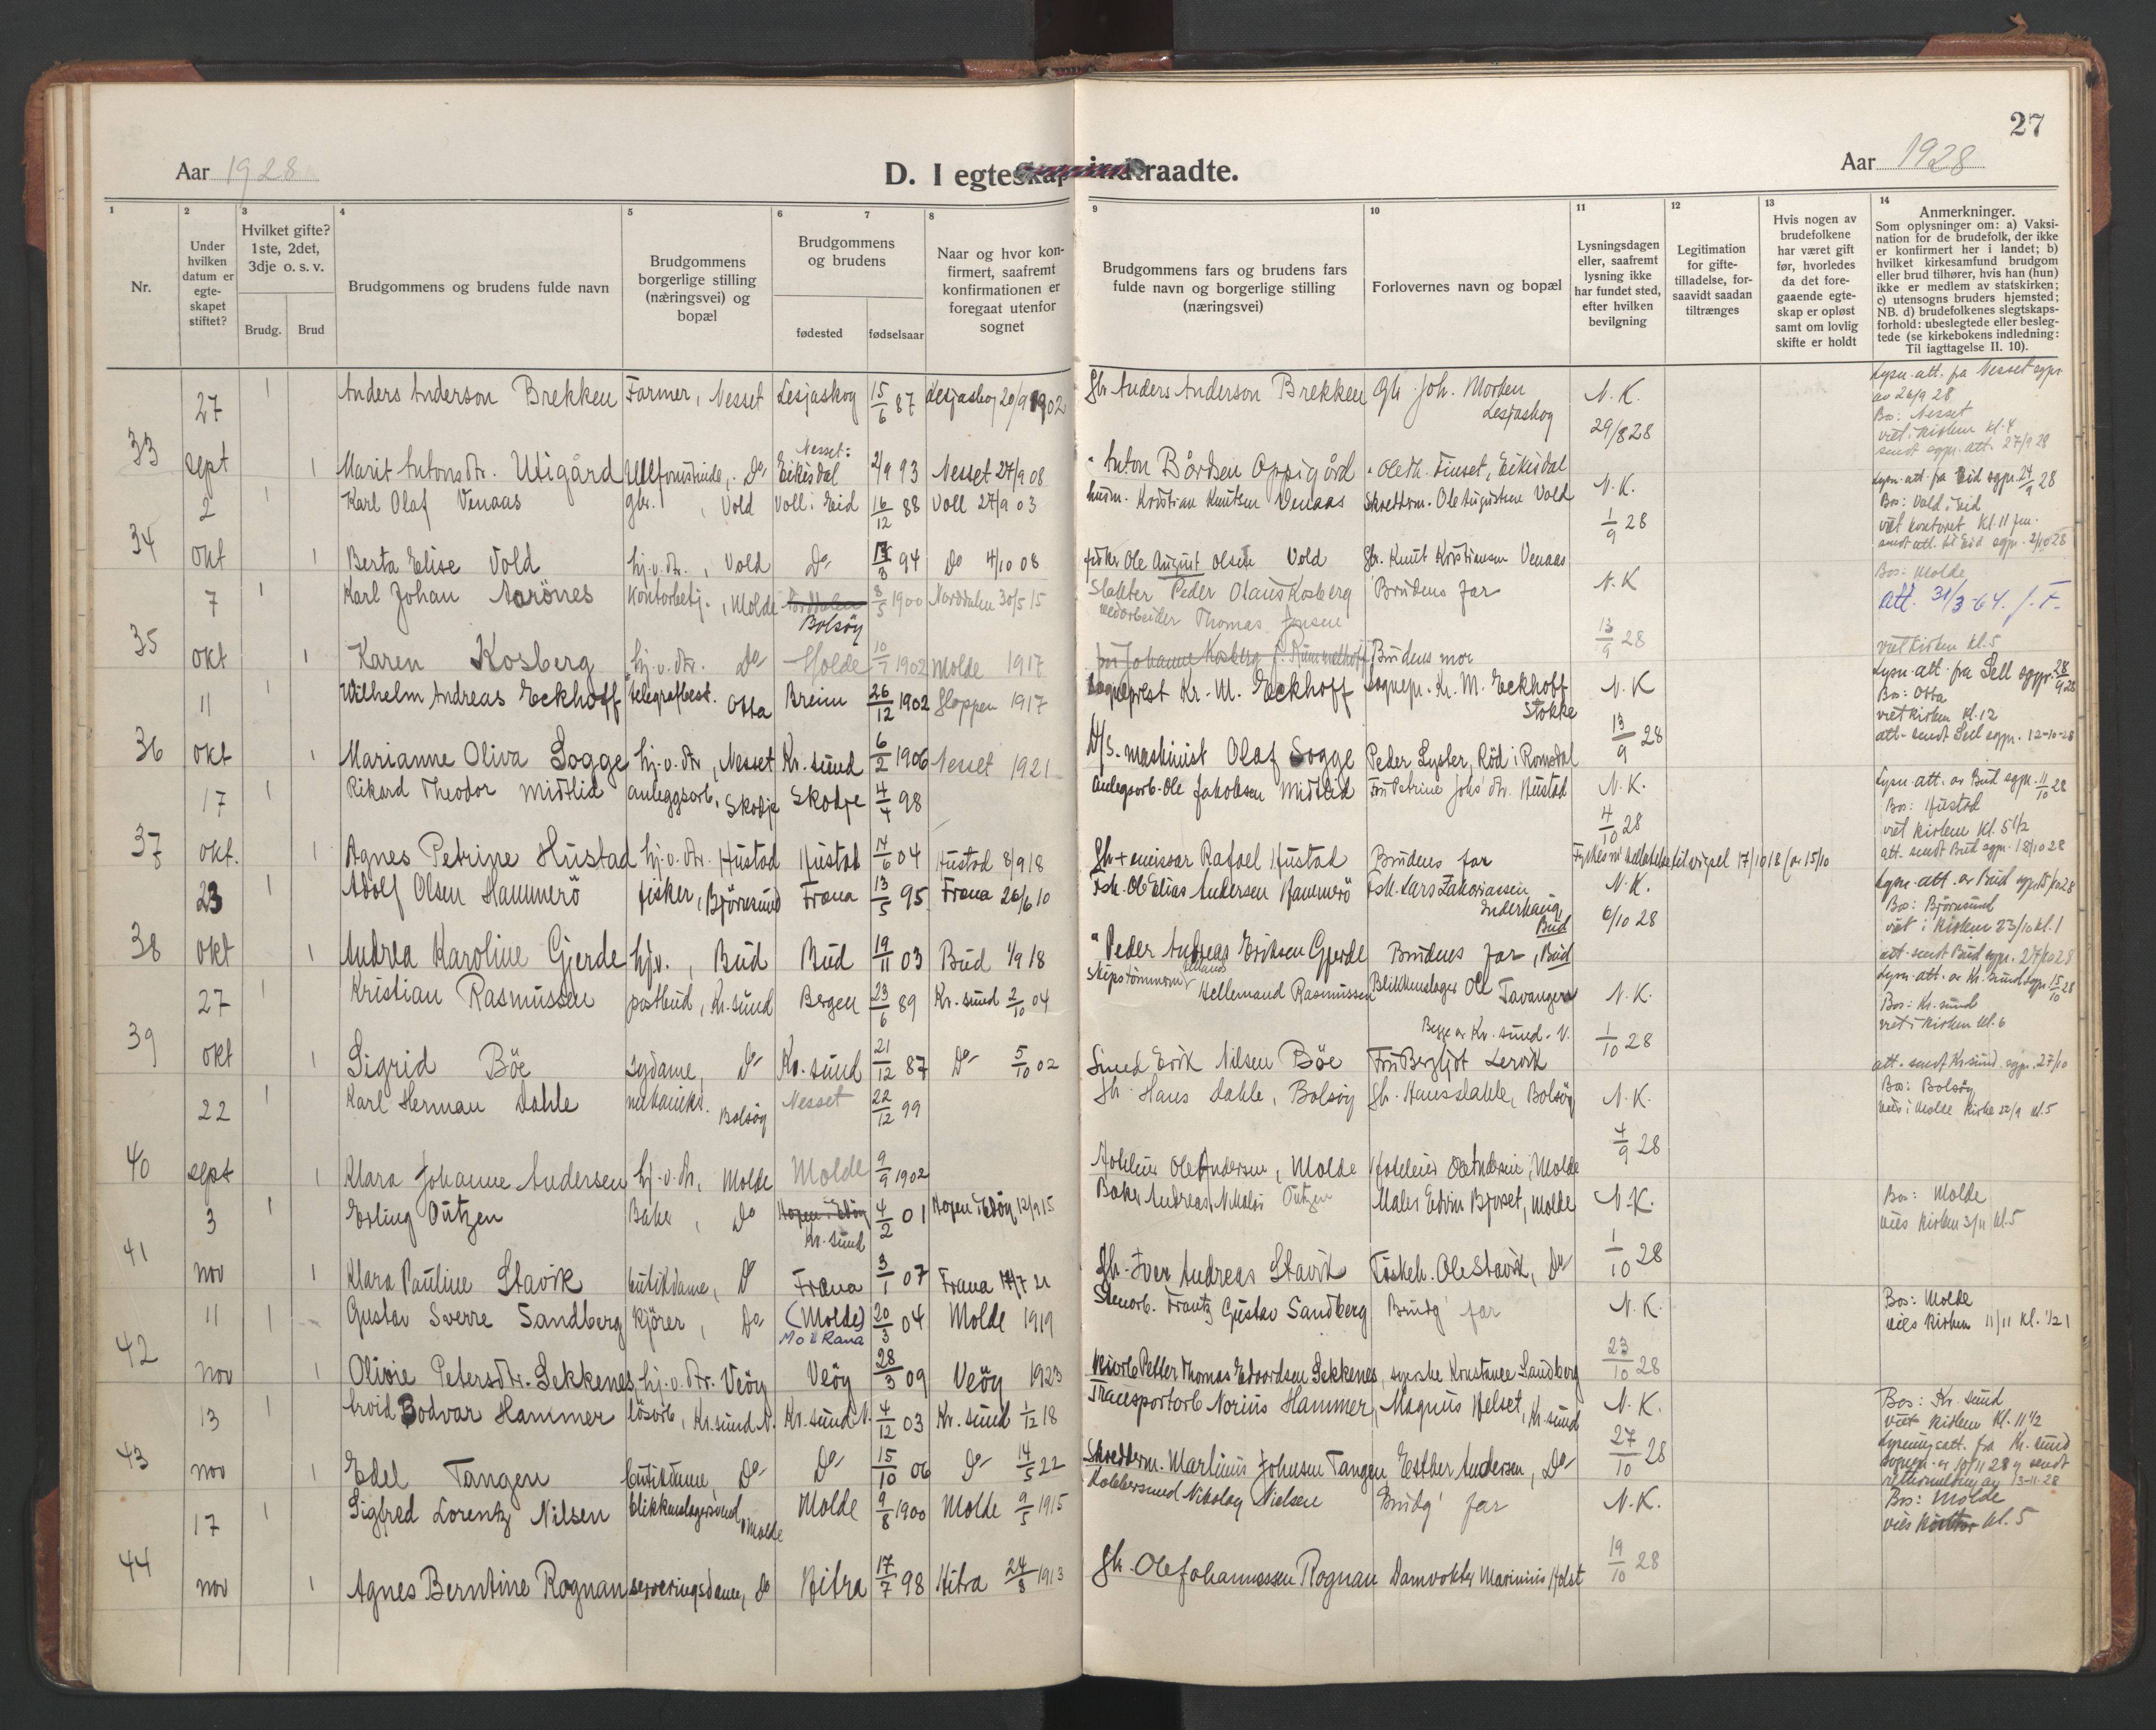 27
Aar 1928
D. I egteskap indtraadte.
Aar 1928
1 2 3 4 5 6 7 8 9 10 11 12 13 14
Nr.
Under hvilken datum er egte-skapet stiftet?
Hvilket gifte? 1ste, 2det, 3dje o. s. v.
Brudg. Brud
Brudgommens og brudens fulde navn
Brudgommens borgerlige stilling (næringsvei) og bopæl
Brudgommens og brudens
fødested fødselsaar
Naar og hvor kon-firmert, saafremt konfirmationen er foregaat utenfor sognet
Brudgommens fars og brudens fars fulde navn og borgerlige stilling (næringsvei)
Forlovernes navn og bopæl
Lysningsdagen eller, saafremt lysning ikke har fundet sted, efter hvilken bevilgning
Legitimation for gifte-tilladelse, for-saavidt saadan tiltrænges
Hvis nogen av brudefolkene har været gift før, hvorledes da det fore-gaaende egte-skap er opløst samt om lovlig skifte er holdt
Anmerkninger.
Som oplysninger om: a) Vaksi-nation for de brudefolk, der ikke er konfirmert her i landet; b) hvilket kirkesamfund brudgom eller brud tilhører, hvis han (hun) ikke er medlem av statskirken; c) utensogns bruders hjemsted; NB. d) brudefolkenes slegtskaps-forhold: ubeslegtede eller besleg-tede (se kirkebokens indledning: Til iagttagelse II. 10).
27 1 Anders Anderson Brekken Farmer, Nesset Lesjaskog 15/6 87 Lesjaskog 20/9 1902 Gbr Anders Anderson Brekken Gbr Joh. Morken Lesjaskog N. K. 29/8 28
Lysn. att. fra Nesset sgpr. av 26/9 28
Bos: Nesset
viet i kirken kl. 4
sendt sgpr. att. 27/9 28
33 sept 1 Marit Antonsdtr. Utigård Do Nesset: Eikisdal 2/9 93 Nesset 27/9 08 " Anton Bårdsen Oppigård " Ole Th. Finset, Eikisdal
2 1 Karl Olaf Venaas gbr., Vold Voll i Eid 16/12 88 Voll 27/9 03 husm. Kristian Knutsen Venaas Skreddrm. Ole Augustsen Vold N. K. 1/9 28
Lysn. att. fra Eid sgpr. 24/9 28
Bos: Vold i Eid
viet kontoret kl. 11 fm.
sendt att. til Eid sgpr. 2/10 28
34 okt 1 Berta Elise Vold hj. v. dtr., Vold Do 94 Do 4/10 08 fisker Ole August Olsen Vold Gbr. Knut Kristiansen Venaas
7 1 Karl Johan Aarönes Kontorbetj., Molde Norddalen Bolsöy 8/5 1900 Norddalen 30/5 15 Slakter Peder Olaus Kosberg Brudens far N. K 13/9 28
vedarbeider Thomas Jensen
Bos: Molde
Att. 31/3-64. J. F.
viet kirken kl. 5
35 okt 1 Karen Kosberg hj. v. dtr. Do Molde 1902 Molde 1917 fru Johanne Kosberg f. Rummelhoff Brudens mor
11 1 Wilhelm Andreas Eckhoff telegrafbest. Otta Breim 26/12 1902 Gloppen 1917 Sogneprest Kr. M. Eckhoff Sognepr. Kr. M. Eckhoff Stokke N. K 13/9 28
Lysn. att. fra Sell sgpr. 28/9 28
Bos: Otta
viet kirken kl. 12
att. sendt Sell sgpr. 12-10-28
36 okt 1 Marianne Oliva Sogge hj. v. dtr, Nesset Kr. sund 6/2 1906 Nesset 1921 D/S. maskinist Olaf Sogge Peder Lysler, Röd i Romsdal
17 1 Rikard Theodor Midtlid anleggsarb. Skodje Skodje 4/4 98 Anlegsarb. Ole Jakobsen Midtlid Fru Petrine Johs' dtr. Hustad N. K. 4/10 28
Lysn. att. av Bud sgpr. 11/10 28
Bos: Hustad
viet kirken kl. 5 1/2
att. sendt Bud sgpr. 18/10 28
37 okt. 1 Agnes Petrine Hustad hj. v. dtr. Hustad Hustad 14/6 04 Hustad 8/9 18 Gbr + emissær Rafael Hustad Brudens far
23 1 Adolf Olsen Hammerö fisker, Björnsund Fræna 13/5 95 Fræna 26/6 10 Fsk. Ole Elias Andersen Hammerö Fsk. Lars Zakariassen Inderhaug, Bud N. K. 6/10 28
Lysn. att. av Bud sgpr.
Bos: Björnsund
viet i kirken 23/10 kl. 1
att. sendt Bud sgpr. 27/10 28
38 okt 1 Andrea Karoline Gjerde hjv., Bud Bud 19/11 03 Bud 1/9 18 " Peder Andreas Eriksen Gjerde Brudens far, Bud
27 1 Kristian Rasmussen postbud, Kr. sund Bergen 23/6 89 Kr. sund 2/10 04 Skipstömmerm. Hellemand Rasmussen Blikkenslager Ole Tavanger Begge av Kr. sund. N. N. K. 1/10 28
Lysn. att. av Kr. sund sgpr. 15/10 28
Bos: Kr. sund
viet i kirken kl. 6
att. sendt Kr. sund sgpr. 27/10
39 okt 1 Sigrid Böe sydame, Do Kr. sund 21/12 87 Do 5/10 02 Smed Erik Nilsen Böe Fru Bergljot Lervik
22 1 Karl Herman Dahle mekaniker. Bolsöy Nesset 22/12 99 Gbr. Hans Dahle, Bolsöy Gbr. Hans Dahle, Bolsöy N. K. 4/9 28
Bos: Bolsöy
vies i Molde kirke 22/9 kl. 5
40 sept 1 Klara Johanne Andersen hj. v. dtr, Molde Molde 9/9 1902 Hoteleier Ole Andersen, Molde Hoteleier Ole Andersen, Molde
3 1 Erling Outzen Baker, Do Hopen i Edöy Kr. sund 4/2 01 Hopen i Edöy 12/9 15 Baker Andreas Nikolai Outzen Maler Edvin Bjorset, Molde N. K. 1/10 28
Bos: Molde
vies kirken 3/11 kl. 5
41 nov 1 Klara Pauline Stavik butikdame, D Fræna 3/1 07 Fræna 21 Gbr. Iver Andreas Stavik Fiskeh. Ole Stavik, Do
11 1 Gustav Sverre Sandberg kjörer, Do (Molde) Mo i Rana 20/3 04 Molde 1919 Stenarb. Frantz Gustav Sandberg Brudg' far N. K. 23/10 28
Bos: Molde
vies kirken 11/11 kl. 1/2 1
42 nov 1 Olivie Petersdtr. Sekkenes hj. v. dtr. Veöy Veöy 28/3 09 Veöy 1923 Petter Thomas Edvardsen Sekkenes, syerske Konstance Sandberg
13 1 Arvid Bodvar Hammer lösarb, Kr. sund N. Kr. sund N. 4/12 03 Kr. sund 1/12 18 Transportarb Norius Hammer, Magnus Helset, Kr. sund N. K. 27/10 28
Bos: Kr. sund
viet kirken kl. 11 1/2
Lysningsatt. fra Kr. sund
sognepr. av 10/11 28 og sendt
13-11-28
43 nov 1 Edel Tangen butikdame, Do Do 15/10 06 Do 14/5 22 Skreddrm. Martinus Johnsen Tangen Esther Andersen, Do
17 1 Sigfred Lorentz Nilsen blikkenslagersvend, Molde Molde 9/8 1900 Molde 9/5 1915 Kobbersmed Nikolay Nielsen Brudg' far N. K. 19/10 28
Bos: Molde
vies kontor kl. 5
44 nov 1 Agnes Berntine Rognan serveringsdame, Do Hitra 17/7 98 Hitra 24/8 1913 Gbr. Ole Johannessen Rognan Damvokter Marinius Holst